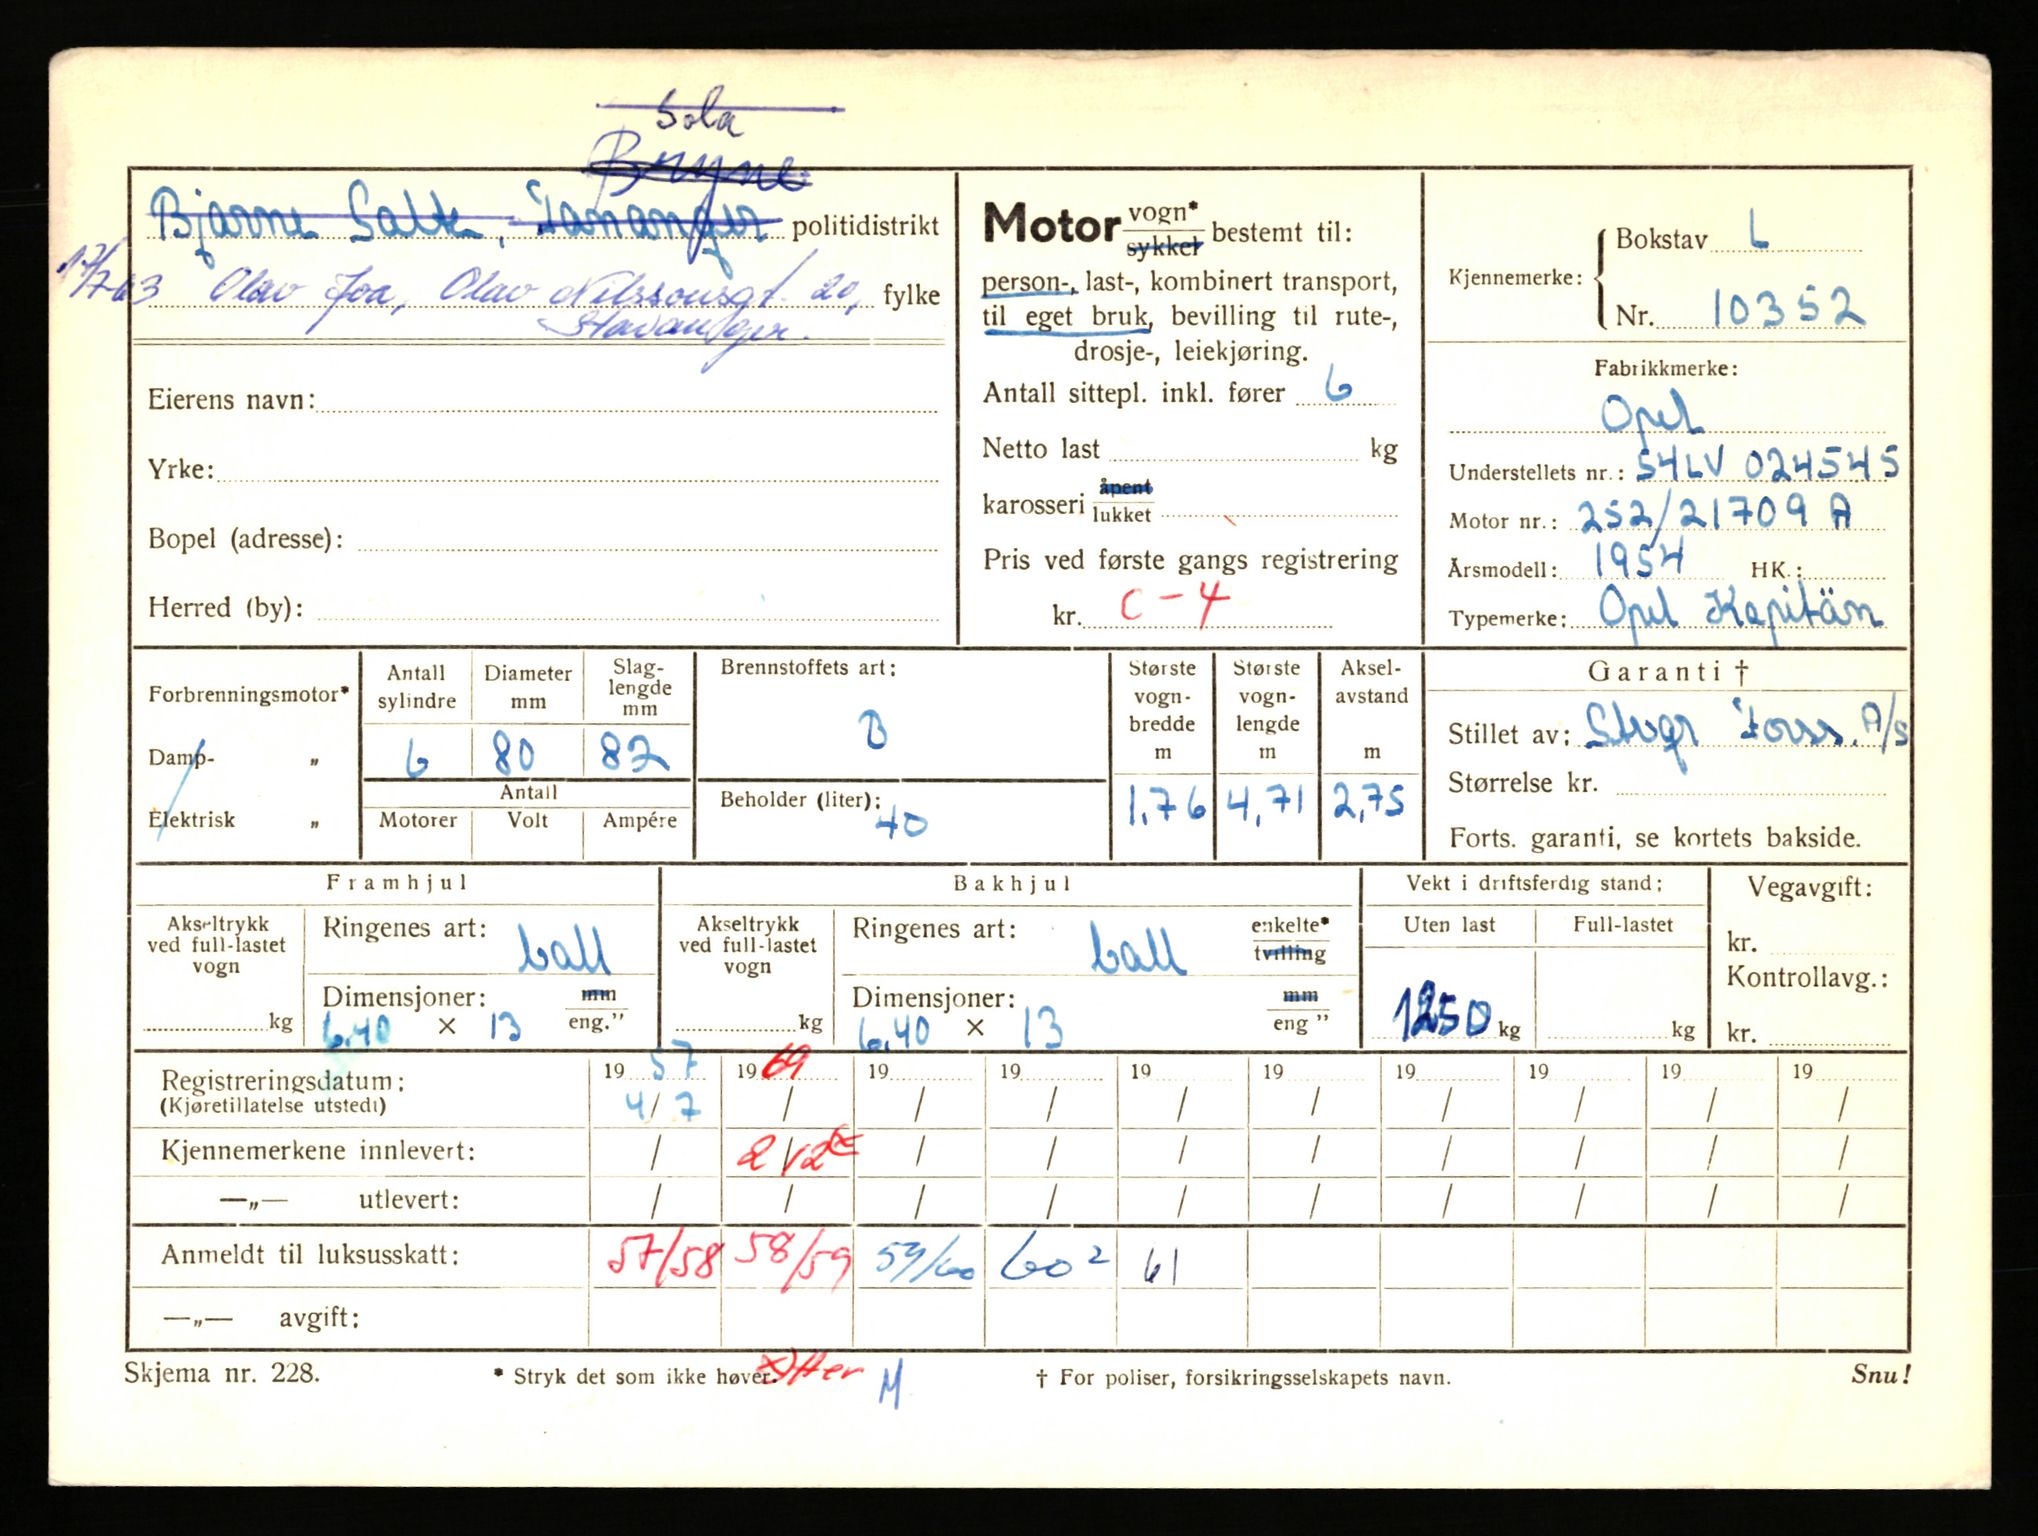 Sola
Bryne
Bjarne Salte, Tananger politidistrikt
17/7 63 Olav Joa, Olav Nilssonsgt. 20, fylke
Stavanger.
Eierens navn:
Yrke:
Bopel (adresse):
Herred (by):
Motor vogn* sykkel bestemt til:
person-, last-, kombinert transport,
til eget bruk, bevilling til rute-,
drosje-, leiekjøring.
Antall sittepl. inkl. fører 6
Netto last kg
karosseri åpent lukket
Pris ved første gangs registrering
kr. C-4
Kjennemerke: Bokstav L
Nr. 10352
Fabrikkmerke:
Opel
Understellets nr.: 54LV 024545
Motor nr.: 252/21709 A
Årsmodell: 1954 HK.:
Typemerke: Opel Kapitän
Forbrenningsmotor*
Damp- „
Elektrisk „
Antall sylindre 6
Diameter mm 80
Slag-lengde mm 82
Antall
Motorer Volt Ampére
Brennstoffets art:
B
Beholder (liter): 40
Største vogn-bredde m 1,76
Største vogn-lengde m 4,71
Aksel-avstand m 2,75
Garanti †
Stillet av: Stvgr Forss. A/S
Størrelse kr.
Forts. garanti, se kortets bakside.
Framhjul
Akseltrykk ved full-lastet vogn kg
Ringenes art: ball
Dimensjoner: mm eng.”
6.40 × 13
Bakhjul
Akseltrykk ved full-lastet vogn kg
Ringenes art: ball enkelte* tvilling
Dimensjoner: mm eng ”
6.40 × 13
Vekt i driftsferdig stand:
Uten last Full-lastet
1250 kg kg
Vegavgift:
kr.
Kontrollavg.:
kr.
Registreringsdatum: 1957 1969 19 19 19 19 19 19 19 19
(Kjøretillatelse utstedt) 4/7 / / / / / / / / /
Kjennemerkene innlevert: / 2/12 x / / / / / / / /
—„— utlevert: / / / / / / / / / /
Anmeldt til luksusskatt: 57/58 58/59 59/60 60² 61
—„— avgift:
Skjema nr. 228. * Stryk det som ikke høver. x) etter M † For poliser, forsikringsselskapets navn. Snu!